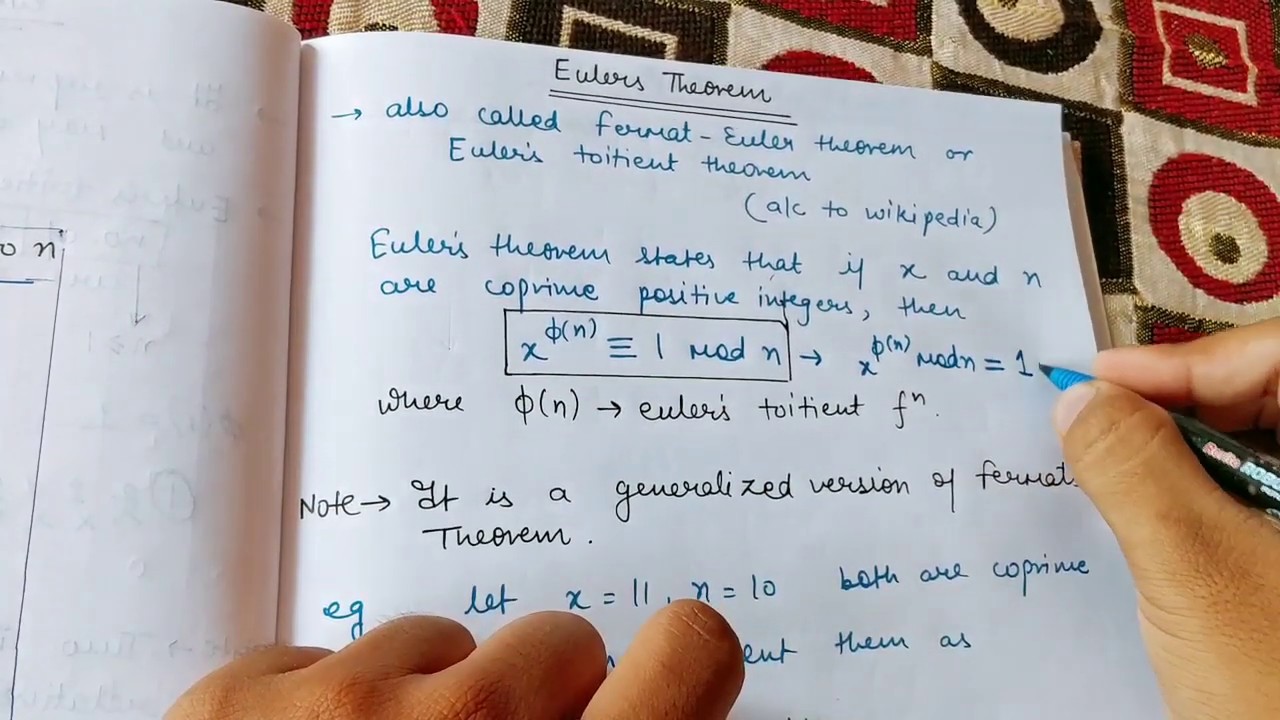 Eulers Theorem
→ also called fermat-Euler theorem or
Euler's toitient theorem
(a/c to wikipedia)
Euler's theorem states that if x and n
are coprime positive integers, then
x^ϕ(n) ≡ 1 mod n → x^ϕ(n) mod n = 1
where ϕ(n) → euler's toitient fⁿ.
Note → It is a generalized version of fermat
Theorem.
eg let x = 11, n = 10 both are coprime
them as
o n